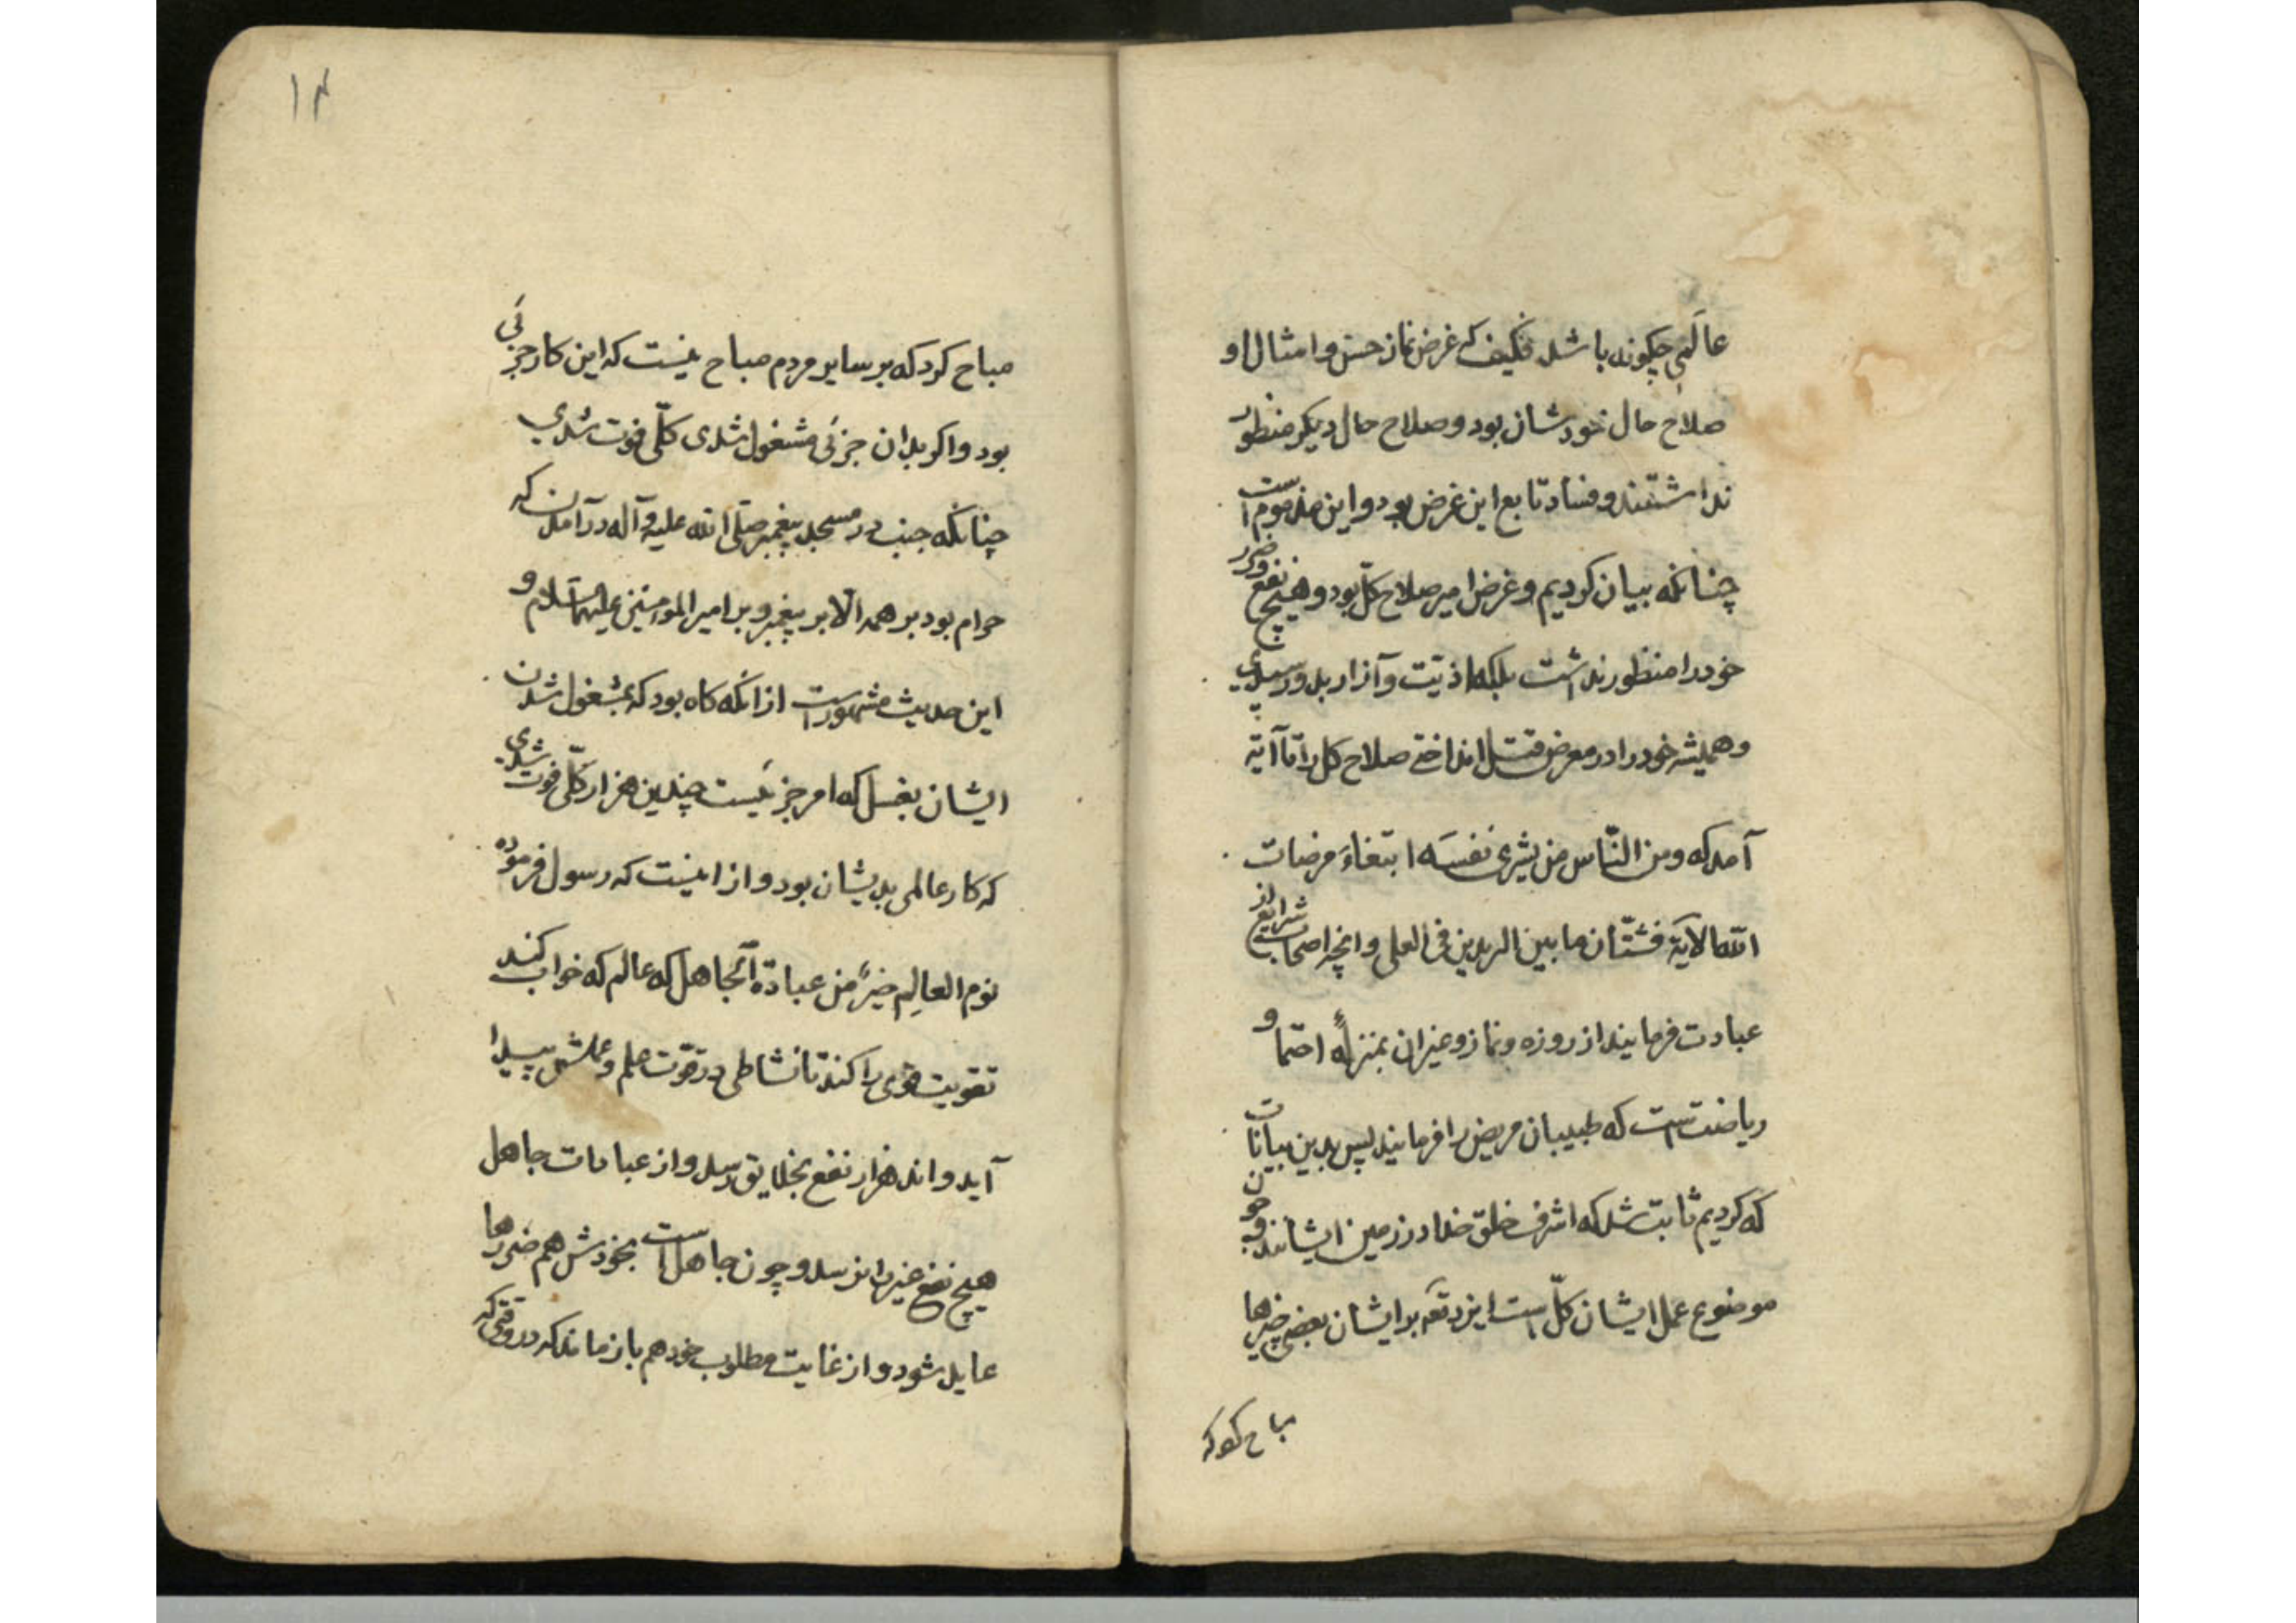 عالمی چگونه باشد فکیف که غرض نماز حسن و امثال او
صلاح حال خودشان بود و صلاح حال دیگر منظور
نداشتند و فساد تابع این غرض بود و این مذموم است
چنانکه بیان کردیم و غرض امیر صلاح کلّ بود و هیچ نفع و ضرر
خود را منظور نداشت بلکه اذیّت و آزار بدو رسیدی
و همیشه خود را در معرض قتل انداختی صلاح کل را تا آیه
آمد که ومن النّاس من یشری نفسَه ابتغاءَ مرضات
الله الایة فشتّان ما بین الریدین فی العلی و انچه اصحاب شرایع از
عبادت فرمایند از روزه و نماز و غیر ان بمنزلهٔ احتما و
ریاضتست که طبیبان مریض را فرمایند پس بدین بیانات
که کردیم ثابت شد که اشرف خلق خدا در زمین ایشانند و چون
موضوع عمل ایشان کلّ است ایزد تعَه بر ایشان بعضی چیزها
مباح کرد که
۱۴
مباح کرد که بر سایر مردم مباح نیست که این کار جزئی
بود و اکر بدان جزئی مشغول شدی کلّی فوت شدی
چنانکه جنب در مسجد پیغمبر صلّی الله علیه وآله درآمدن که
حرام بود بر همه الّا بر پیغمبر و بر امیر المومنین علیهما السّلام و
این حدیث مشهورست از انکه کاه بود که بمشغول شدن
ایشان بغسل که امر جزئیست چندین هزار کلّی فوت شدی
که کار عالمی بدیشان بود و از اینست که رسول فرموده
نوم العالِم خیرٌ من عبادة الجاهل که عالم که خواب کند
تقویت قوی را کند تا نشاطی در قوّت علم و عملش پیدا
آید و اند هزار نفع بخلایق رسد و از عبادات جاهل
هیچ نفع غیر را نرسد و چون جاهل است بخودش هم ضررها
عاید شود و از غایت مطلوب خود هم باز ماند که در وقتی که